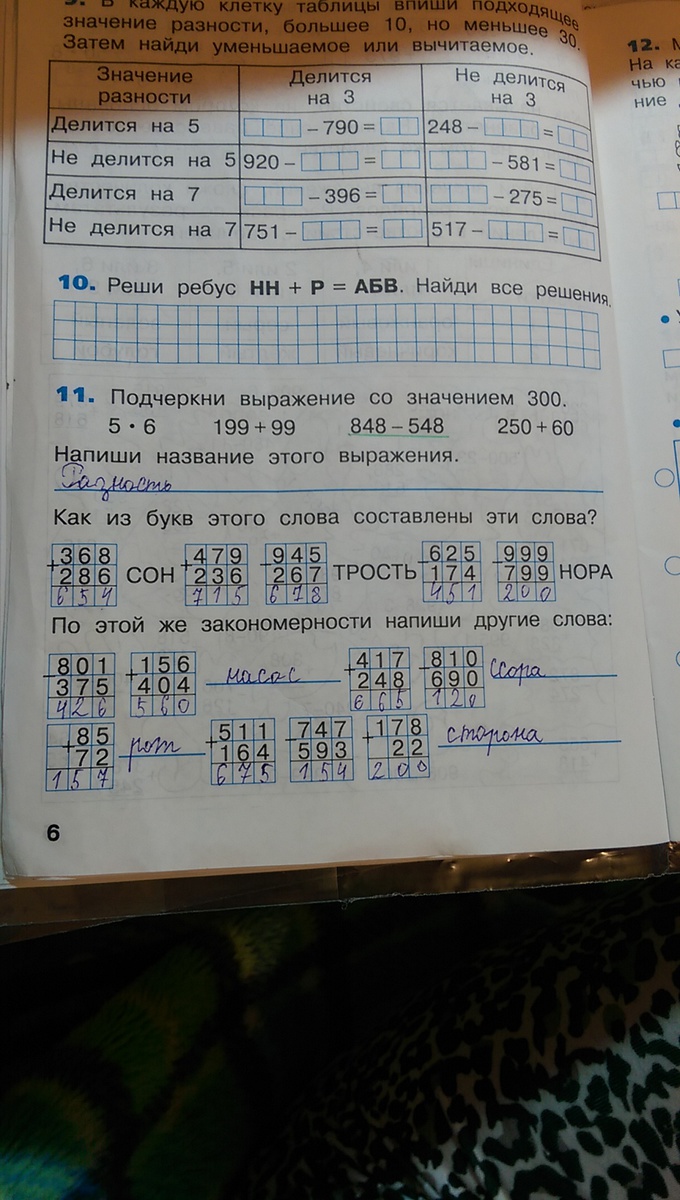 9. В каждую клетку таблицы впиши подходящее
значение разности, большее 10, но меньшее 30.
Затем найди уменьшаемое или вычитаемое.
Значение разности | Делится на 3 | Не делится на 3
Делится на 5 | – 790 = | 248 – =
Не делится на 5 | 920 – = | – 581 =
Делится на 7 | – 396 = | – 275 =
Не делится на 7 | 751 – = | 517 – =
10. Реши ребус НН + Р = АБВ. Найди все решения.
11. Подчеркни выражение со значением 300.
5 · 6 199 + 99 848 – 548 250 + 60
Напиши название этого выражения.
Разность
Как из букв этого слова составлены эти слова?
+368 +479 –945 –625 –999
286 СОН 236 267 ТРОСТЬ 174 799 НОРА
654 715 678 451 200
По этой же закономерности напиши другие слова:
–801 +156 +417 –810
375 404 насос 248 690 ссора
426 560 665 120
+85 +511 –747 +178
72 рот 164 593 22 сторона
157 675 154 200
6
12.
На ка
чью
ние